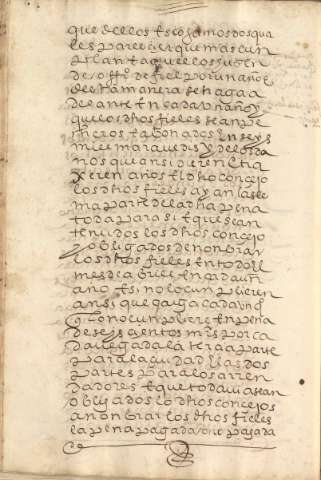 que dellos escojamos dos qua
les paresçier que mas cun
plan t aquellos sirven
de offi° de fiel por un año e
desta manera se haga a
delante en cada un año y
que los dhos fieles sean pe
cheros t abonados en seys
mill maravedis y del dia
nos que ansi dieren e tru
xeren años el dho concejo
los dhos fieles ayan la se
ma parte de la dha pena
toda para si t que sean
tenudos los dhos concejo
y obligados de nonbrar
los dhos fieles en todo el
mes de abril en cada un
año t si no lo cunplieren
ansi que caga cada uno
q lo no cunpliere en pena
de seys cientos mrs por ca
da vegada la terçia parte
para la ciudad t las dos
partes para los arren
dadores t que todavia sean
obligados los dhos concejos
a nonbrar los dhos fieles
la pena pagada o no pagada